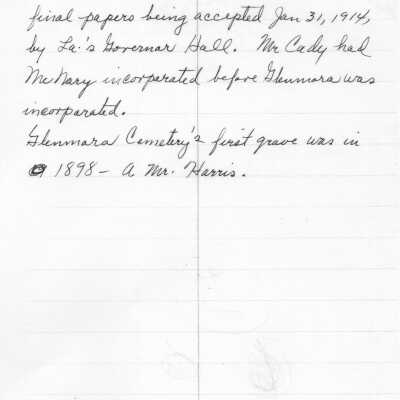 final papers being accepted Jan 31, 1914,
by La.'s Governor Hall. Mr Cady had
McNary incorporated before Glenmora was
incorporated.
Glenmora Cemetery's first grave was in
1898 - A Mr. Harris.